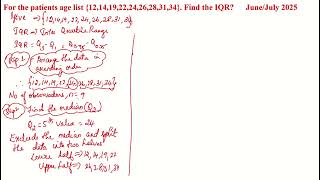 For the patients age list {12,14,19,22,24,26,28,31,34}. Find the IQR? June/July 2025
→ {12,14,19,22,24,26,28,31,34}
IQR → Inter Quartile Range
IQR = Q3 - Q1 =
Step 1 Arrange the data in
ascending order
{12,14,19,22,24,26,28,31,34}
No of observations, n = 9
Step 2 Find the median (Q2)
Q2 = 5th value = 24
Exclude the median and split
the data into two halves
Lower half → 12, 14, 19, 22
Upper half → 26, 28, 31, 34